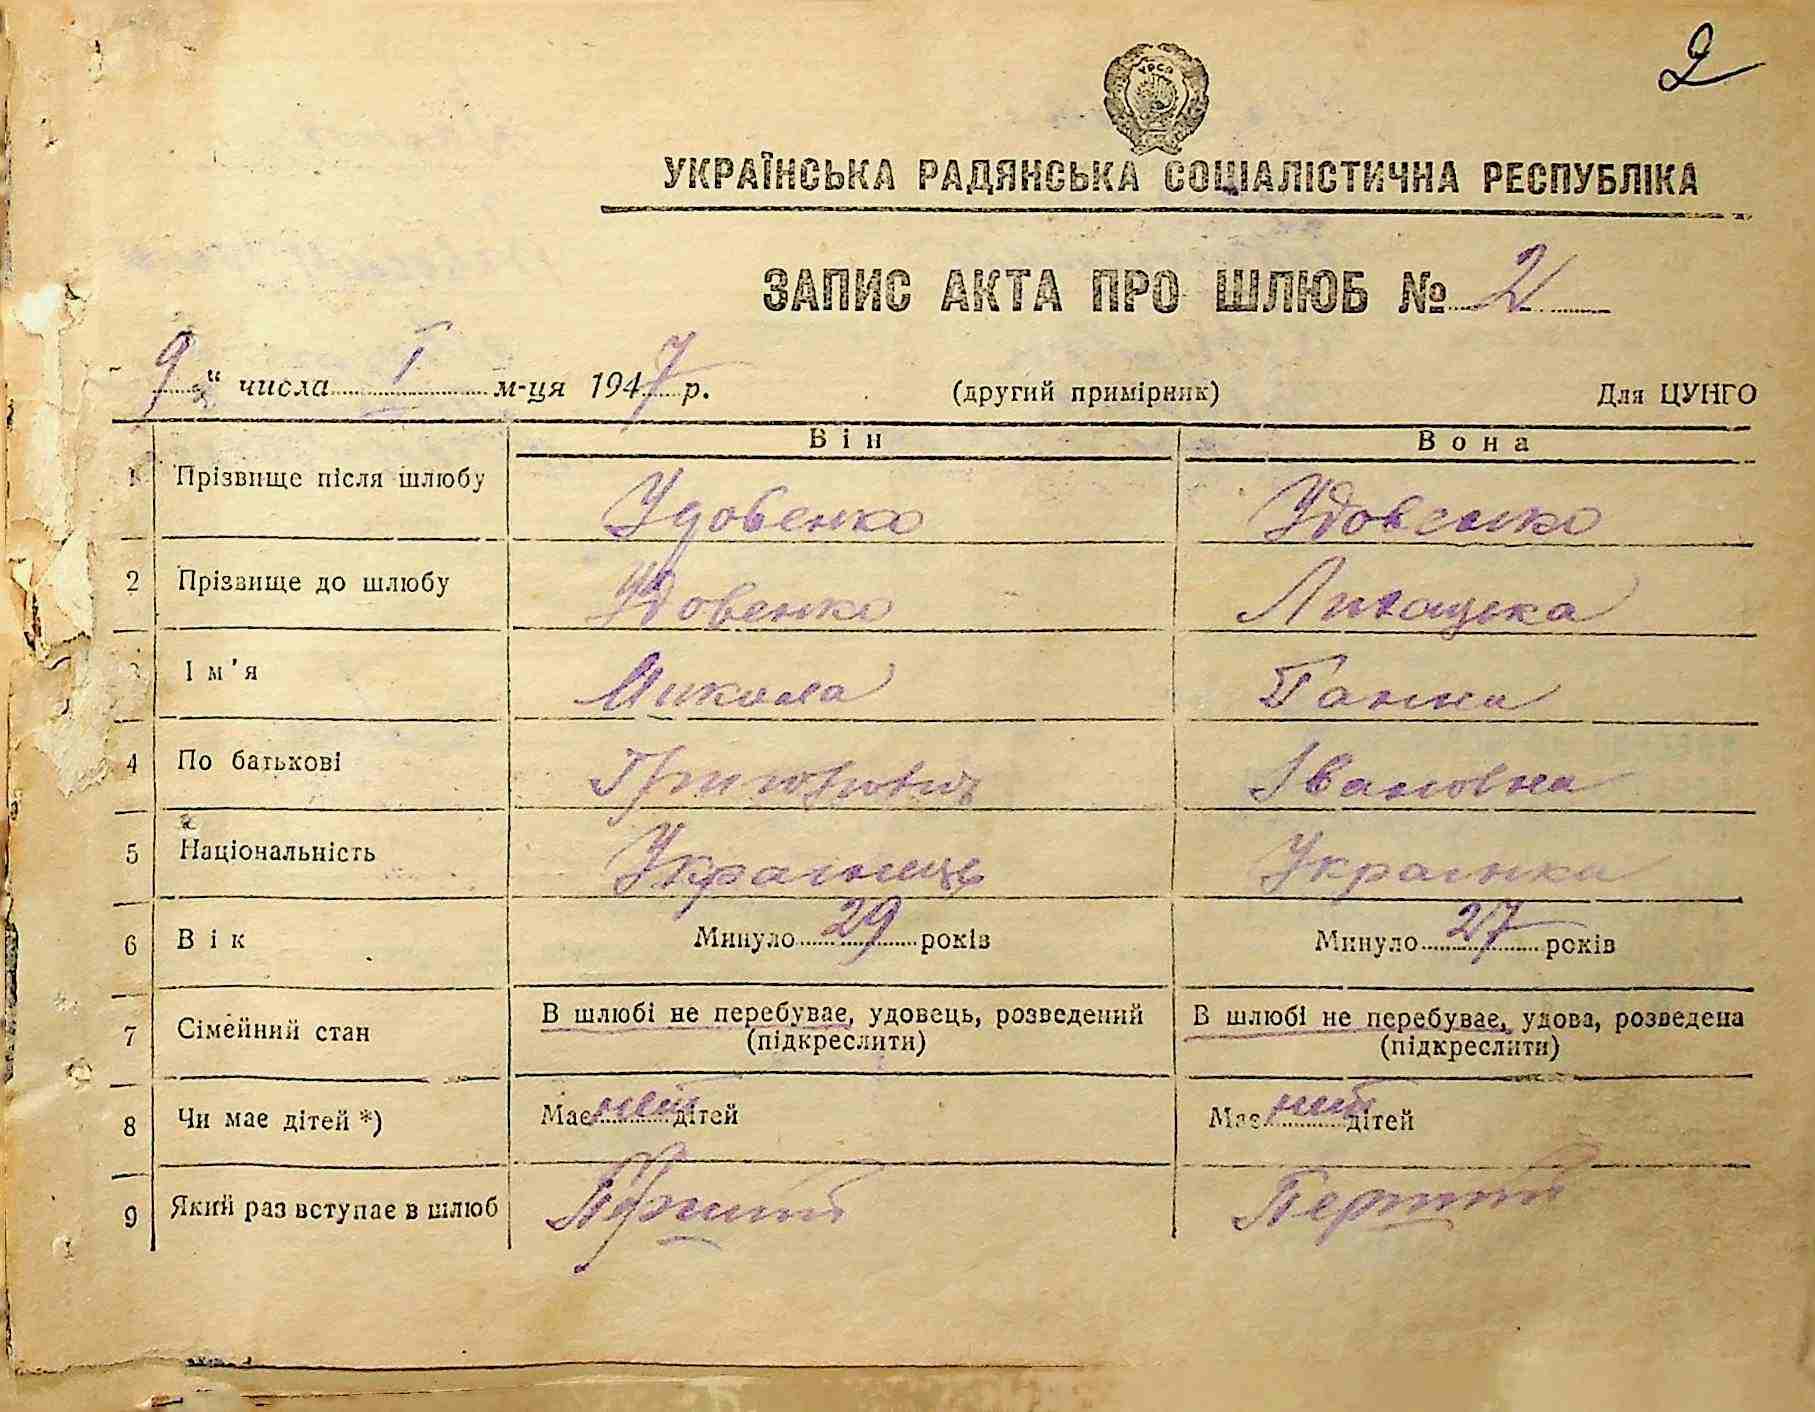 2
УРСР
УКРАЇНСЬКА РАДЯНСЬКА СОЦІАЛІСТИЧНА РЕСПУБЛІКА
ЗАПИС АКТА ПРО ШЛЮБ № 2
9 " числа I м-ця 1947 р. (другий примірник) Для ЦУНГО
Він Вона
1 Прізвище після шлюбу Удовенко Удовенко
2 Прізвище до шлюбу Удовенко
Ім'я Микола Ганна
4 По батькові Григорович Івановна
5 Національність Українець Українка
6 Вік Минуло 29 років Минуло 27 років
7 Сімейний стан В шлюбі не перебуває, удовець, розведений (підкреслити) В шлюбі не перебуває, удова, розведена (підкреслити)
8 Чи має дітей *) Має нет дітей Має нет дітей
9 Який раз вступає в шлюб Перший Перший